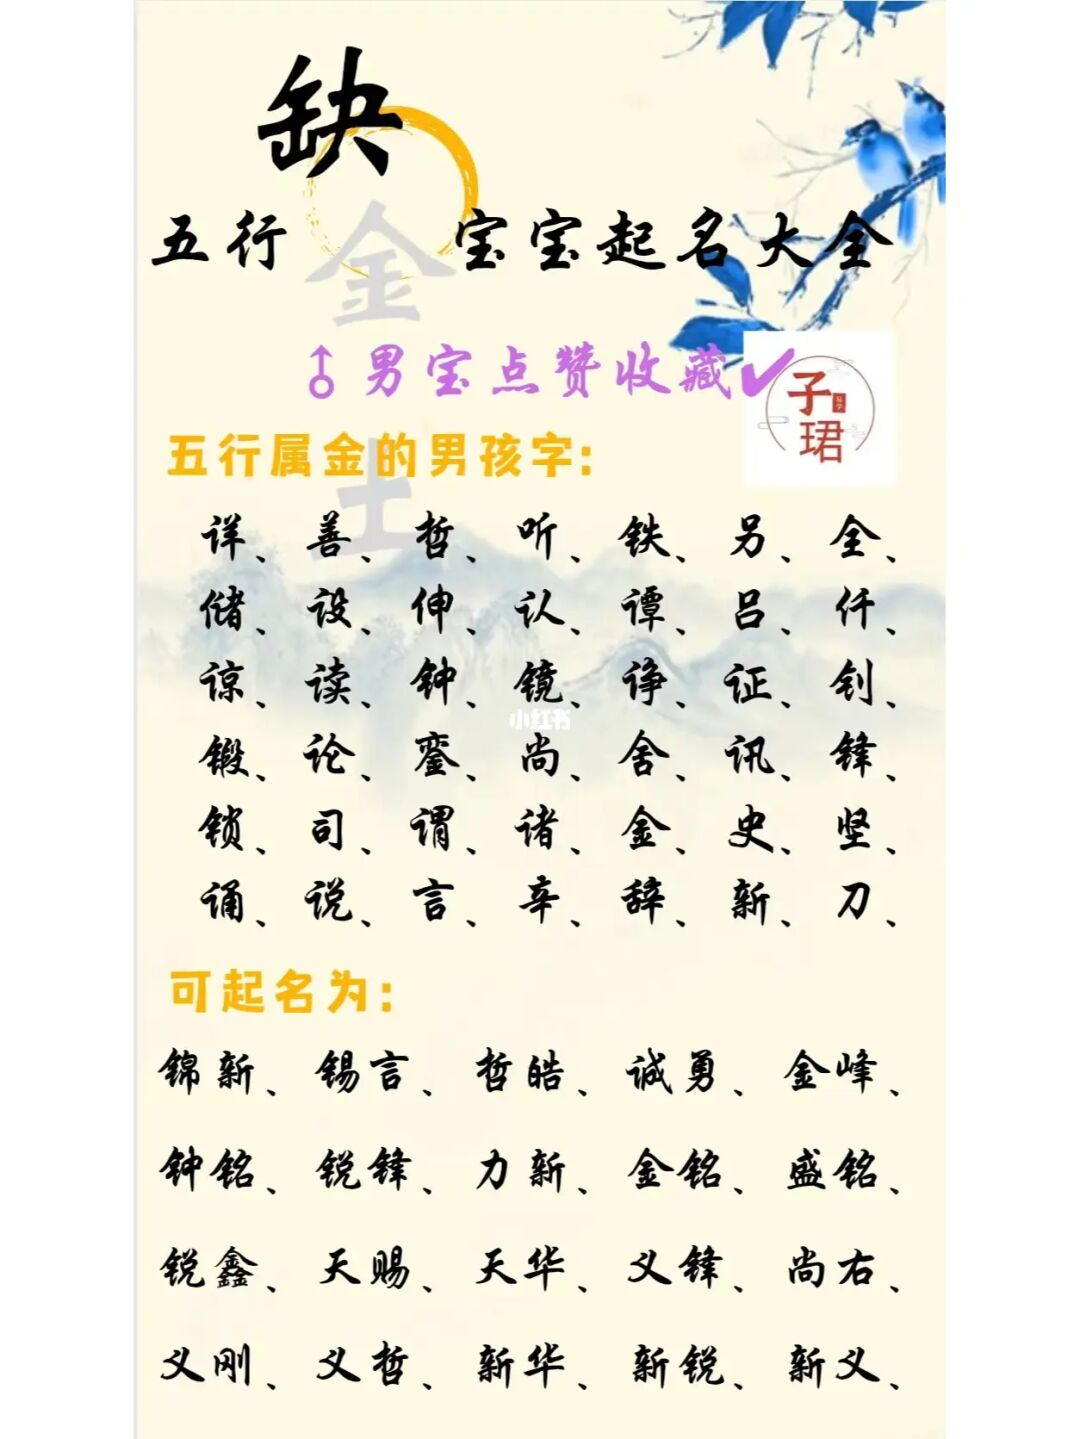 缺
五行 金 宝宝起名大全
土
♂男宝点赞收藏✓
子珺
易学
五行属金的男孩字:
详、善、哲、听、铁、另、全、
储、设、伸、认、谭、吕、仟、
谅、读、钟、镜、诤、证、钊、
锻、论、銮、尚、舍、讯、锋、
小红书
锁、司、谓、诸、金、史、坚、
诵、说、言、辛、辞、新、刀、
可起名为:
锦新、锡言、哲皓、诚勇、金峰、
钟铭、锐锋、力新、金铭、盛铭、
锐鑫、天赐、天华、义锋、尚右、
义刚、义哲、新华、新锐、新义、